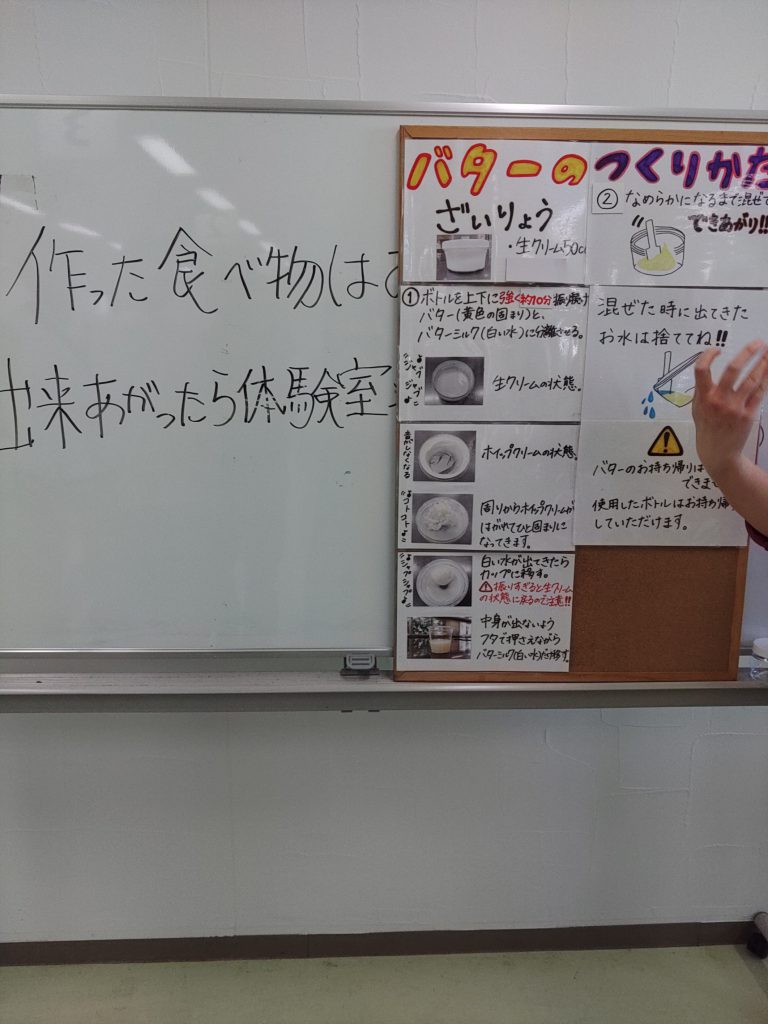 作った食べ物は
出来あがったら体験室
バターのつくりかた
ざいりょう
・生クリーム50cc
①ボトルを上下に強く約10分振り続け
バター(黄色の固まり)と、
バターミルク(白い水)に分離させる。
ジャブ
ジャブ
生クリームの状態。
音がしなくなる
ホイップクリームの状態。
ゴト
ゴト
周りからホイップクリームが
はがれてひと固まりに
なってきます。
ジャプ
ジャプ
白い水が出てきたら
カップに移す。
振りすぎると生クリーム
の状態に戻るので注意!!
中身が出ないよう
フタで押さえながら
バターミルク(白い水)だけ移す。
② なめらかになるまで混ぜて
できあがり!!
混ぜた時に出てきた
お水は捨ててね!!
バターのお持ち帰りは
できま
使用したボトルはお持ち帰
していただけます。